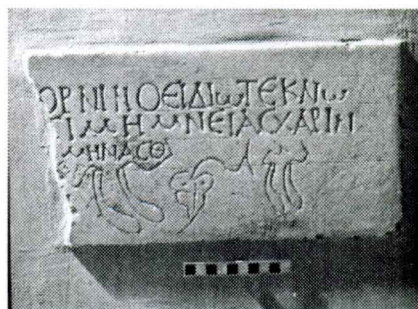 ΟΡΝΙΗΟΕΙΔΙωΤΕΚΝω
ΤΙΜΗΜΝΕΙΑCΧΑΡΙΝ
ΜΗΝΑCΘ